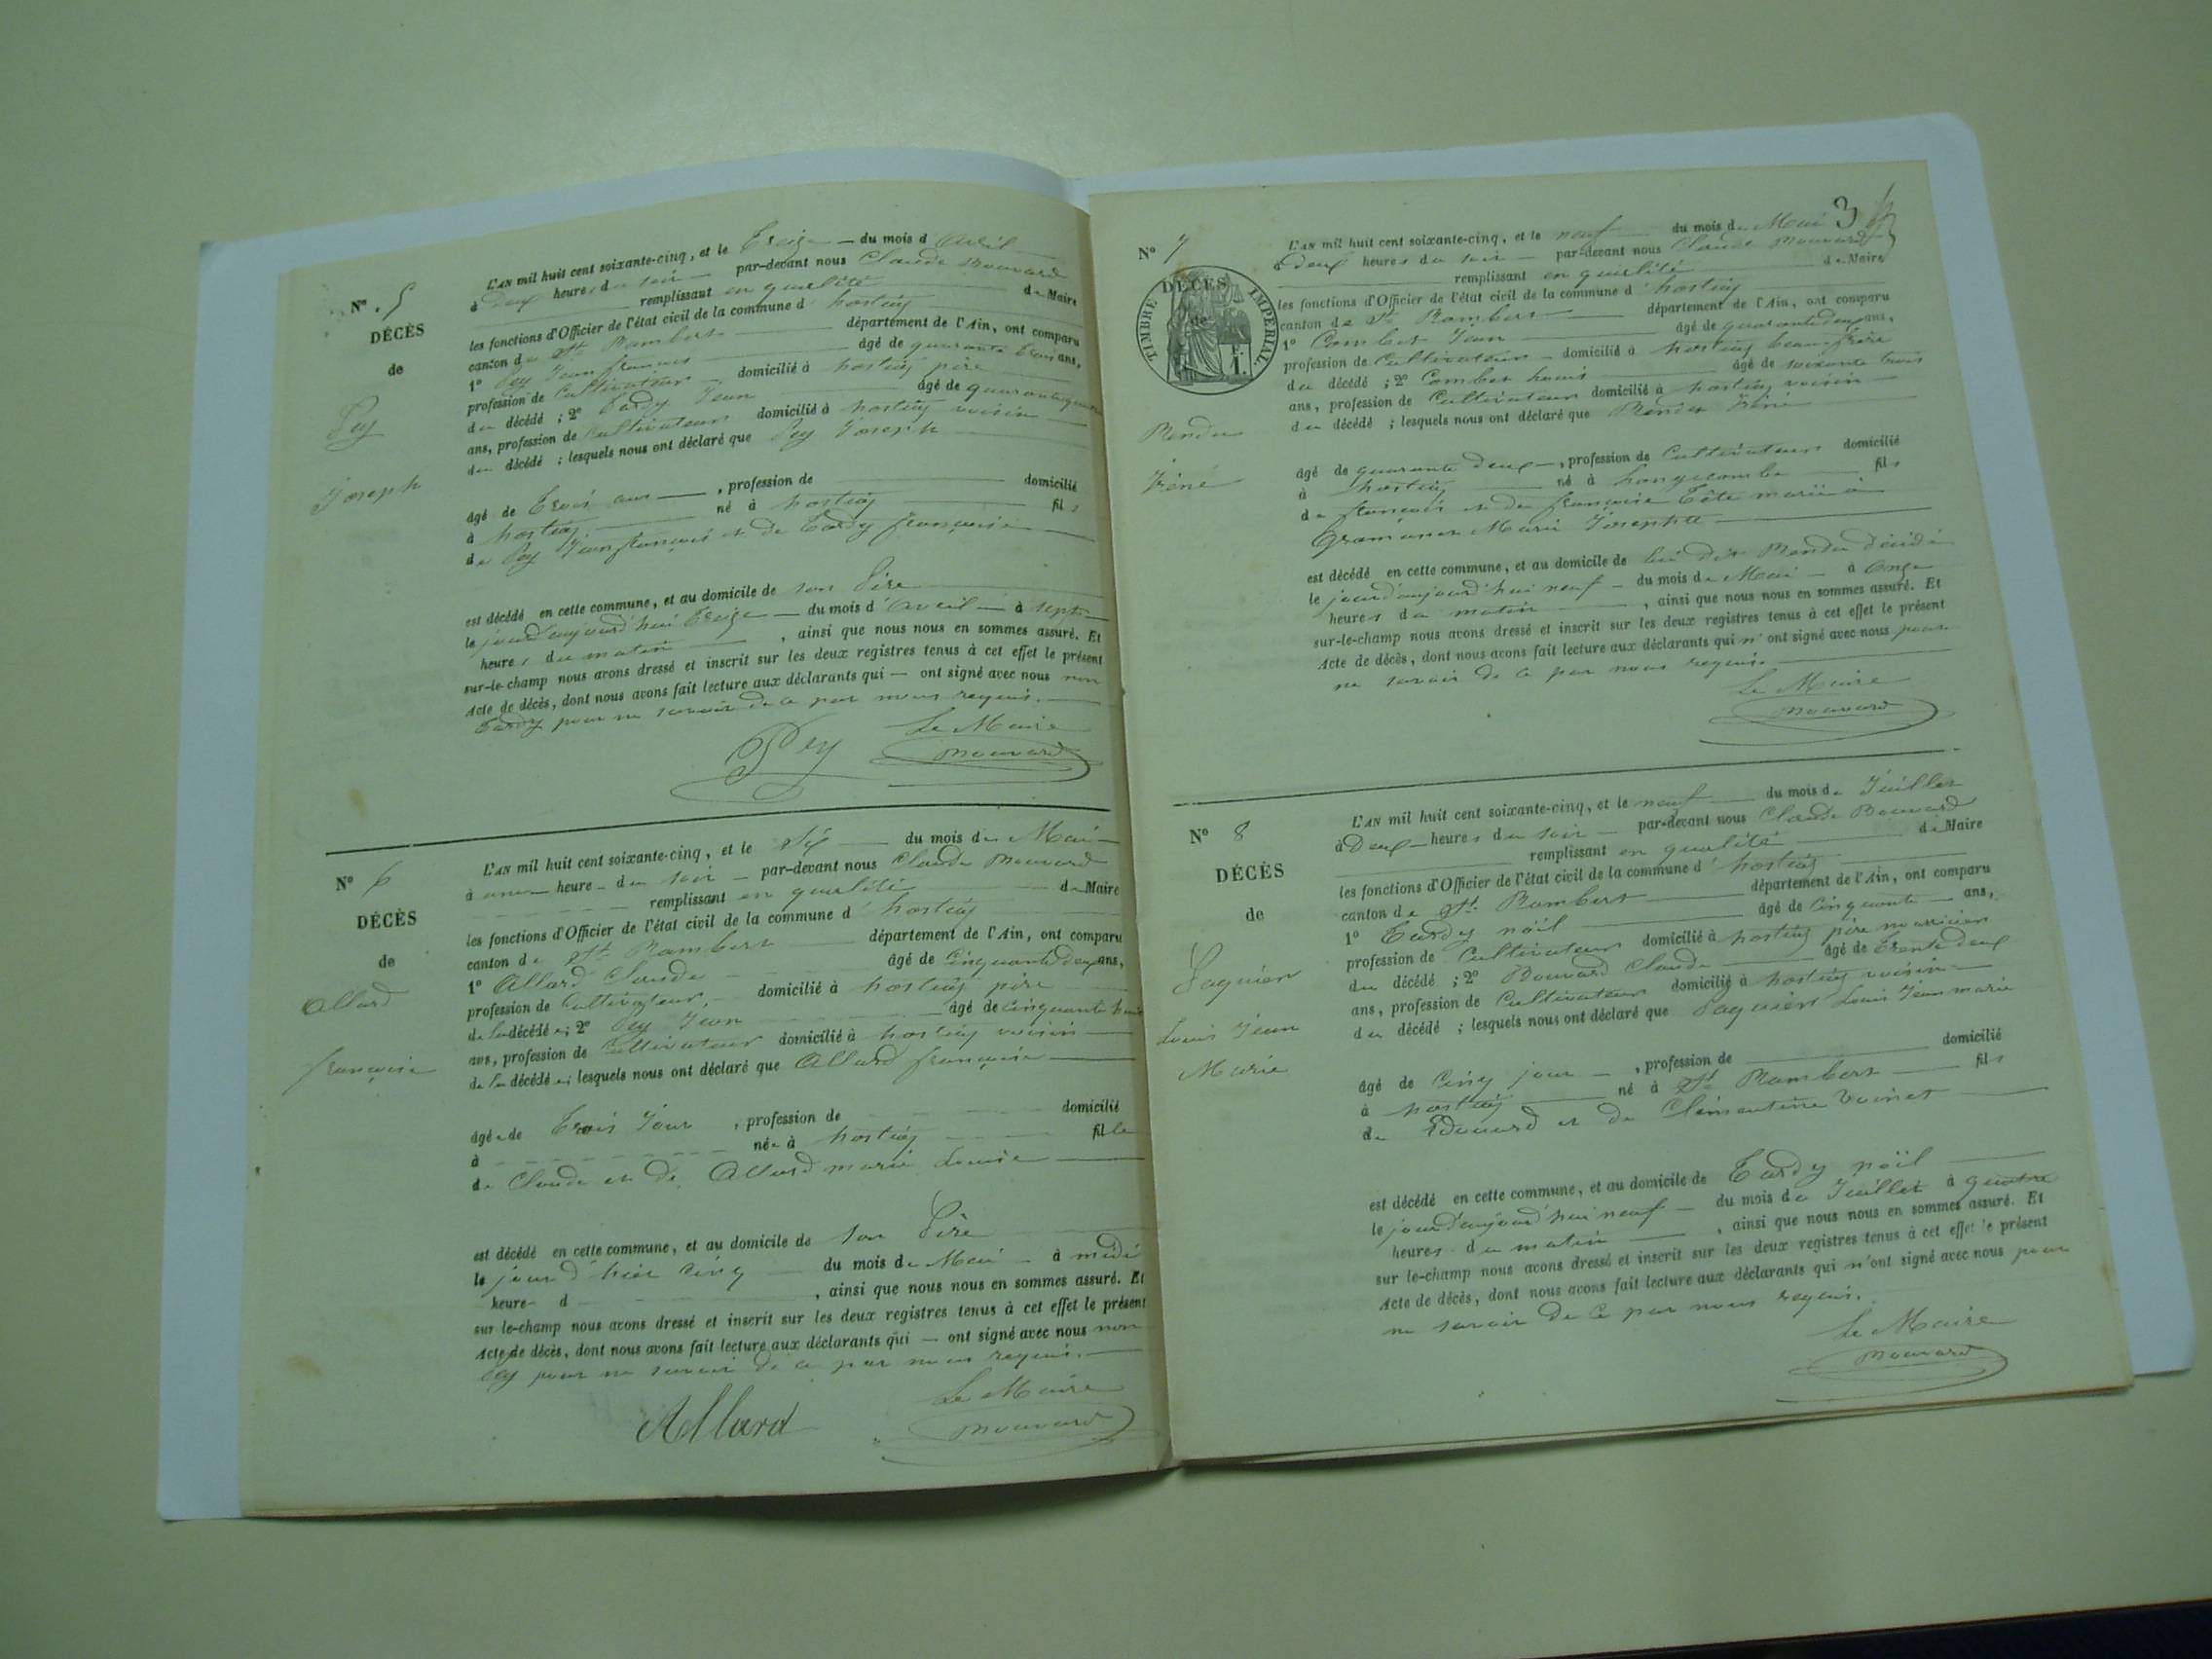 N° 5
DÉCÈS
de
Pey
Joseph
L'AN mil huit cent soixante-cinq, et le Treize du mois d'Avril
à deux heures du soir par-devant nous Claude Bouvard
remplissant en qualité de Maire
les fonctions d'Officier de l'état civil de la commune d'hostiaz
canton de St Rambert département de l'Ain, ont comparu
1° Pey Jean françois âgé de quarante trois ans,
profession de Cultivateur domicilié à hostiaz père
du décédé ; 2° Tardy Jean âgé de
ans, profession de Cultivateur domicilié à hostiaz voisin
du décédé ; lesquels nous ont déclaré que Pey Joseph
âgé de Trois ans , profession de domicilié
à hostiaz né à hostiaz fils
de Pey Jean françois et de Tardy françoise
est décédé en cette commune, et au domicile de son Père
le jourd'aujourd'hui Treize du mois d'Avril à sept
heures du matin , ainsi que nous nous en sommes assuré. Et
sur-le-champ nous avons dressé et inscrit sur les deux registres tenus à cet effet le présent
Acte de décès, dont nous avons fait lecture aux déclarants qui — ont signé avec nous non
Tardy pour ne savoir de ce par nous requis.
Pey Le Maire
Bouvard
N° 6
DÉCÈS
de
Allard
françoise
L'AN mil huit cent soixante-cinq, et le Six du mois de Mai
à une heure du soir par-devant nous Claude Bouvard
remplissant en qualité de Maire
les fonctions d'Officier de l'état civil de la commune d'hostiaz
canton de St Rambert département de l'Ain, ont comparu
1° Allard Claude âgé de Cinquante deux ans,
profession de Cultivateur domicilié à hostiaz père
de la décédée ; 2° Pey Jean âgé de cinquante huit
ans, profession de Cultivateur domicilié à hostiaz voisin
de la décédée ; lesquels nous ont déclaré que Allard françoise
âgée de Trois Jour , profession de domicilié
à née à hostiaz fille
de Claude et de Allard marie Louise
est décédé en cette commune, et au domicile de son Père
le jour d'hier cinq du mois de Mai à midi
heure d , ainsi que nous nous en sommes assuré. Et
sur-le-champ nous avons dressé et inscrit sur les deux registres tenus à cet effet le présent
Acte de décès, dont nous avons fait lecture aux déclarants qui — ont signé avec nous non
Pey pour ne savoir de ce par nous requis.
Allard Le Maire
Bouvard
3
N° 7
TIMBRE IMPÉRIAL
DÉCÈS
de
Rendu
Iréné
L'AN mil huit cent soixante-cinq, et le neuf du mois de Mai
à deux heures du soir par-devant nous Claude Bouvard
remplissant en qualité de Maire
les fonctions d'Officier de l'état civil de la commune d'hostiaz
canton de St Rambert département de l'Ain, ont comparu
1° Combet Jean âgé de quarante deux ans,
profession de Cultivateur domicilié à hostiaz beau frère
du décédé ; 2° Combet Louis âgé de soixante trois
ans, profession de Cultivateur domicilié à hostiaz voisin
du décédé ; lesquels nous ont déclaré que Rendu Iréné
âgé de quarante deux , profession de Cultivateur domicilié
à hostiaz né à Longecombe fils
de françois et de françoise Tête marié à
Marie Josephte
est décédé en cette commune, et au domicile de lui dit Rendu décédé
le jourd'aujourd'hui neuf du mois de Mai à onze
heures du matin , ainsi que nous nous en sommes assuré. Et
sur-le-champ nous avons dressé et inscrit sur les deux registres tenus à cet effet le présent
Acte de décès, dont nous avons fait lecture aux déclarants qui n'ont signé avec nous pour
ne savoir de ce par nous requis.
Le Maire
Bouvard
N° 8
DÉCÈS
de
Paquier
Louis Jean
Marie
L'AN mil huit cent soixante-cinq, et le neuf du mois de Juillet
à Deux heures du soir par-devant nous Claude Bouvard
remplissant en qualité de Maire
les fonctions d'Officier de l'état civil de la commune d'hostiaz
canton de St Rambert département de l'Ain, ont comparu
1° Tardy nöil âgé de Cinquante ans,
profession de Cultivateur domicilié à hostiaz père nourricier
du décédé ; 2° Bouvard Claude âgé de Trente deux
ans, profession de Cultivateur domicilié à hostiaz voisin
du décédé ; lesquels nous ont déclaré que Paquier Louis Jean marie
âgé de Cinq jour , profession de domicilié
à hostiaz né à St Rambert fils
de Edouard et de Clémentine
est décédé en cette commune, et au domicile de Tardy nöil
le jourd'aujourd'hui neuf du mois de Juillet à quatre
heures du matin , ainsi que nous nous en sommes assuré. Et
sur-le-champ nous avons dressé et inscrit sur les deux registres tenus à cet effet le présent
Acte de décès, dont nous avons fait lecture aux déclarants qui n'ont signé avec nous pour
ne savoir de ce par nous requis.
Le Maire
Bouvard